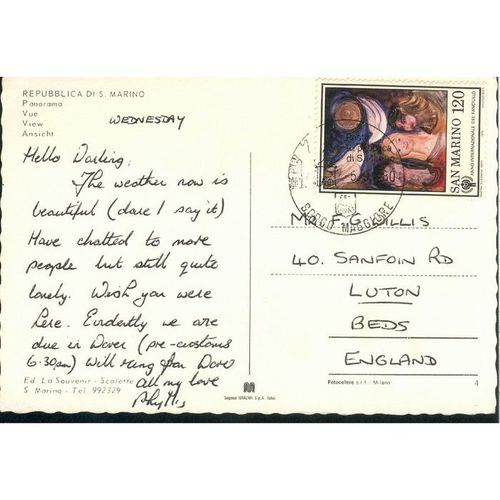 REPUBBLICA DI S. MARINO
Panorama
Vue
View
Ansicht
WEDNESDAY
Hello Darling:
The weather now is
beautiful (dare I say it)
Have chatted to more
people but still quite
lonely. Wish you were
here. Evidently we are
due in Dover (pre-customs
6.30pm) will ring from Dover
all my love
Phyllis
Ed. La Souvenir - Scalette
S. Marino - Tel. 992329
SAN MARINO 120
ANNO INTERNAZIONALE DEL FANCIULLO
BORGO MAGGIORE
MR F. G. WILLIS
40. SANFOIN RD
LUTON
BEDS
ENGLAND
Fotocelere s.r.l. - Milano
4